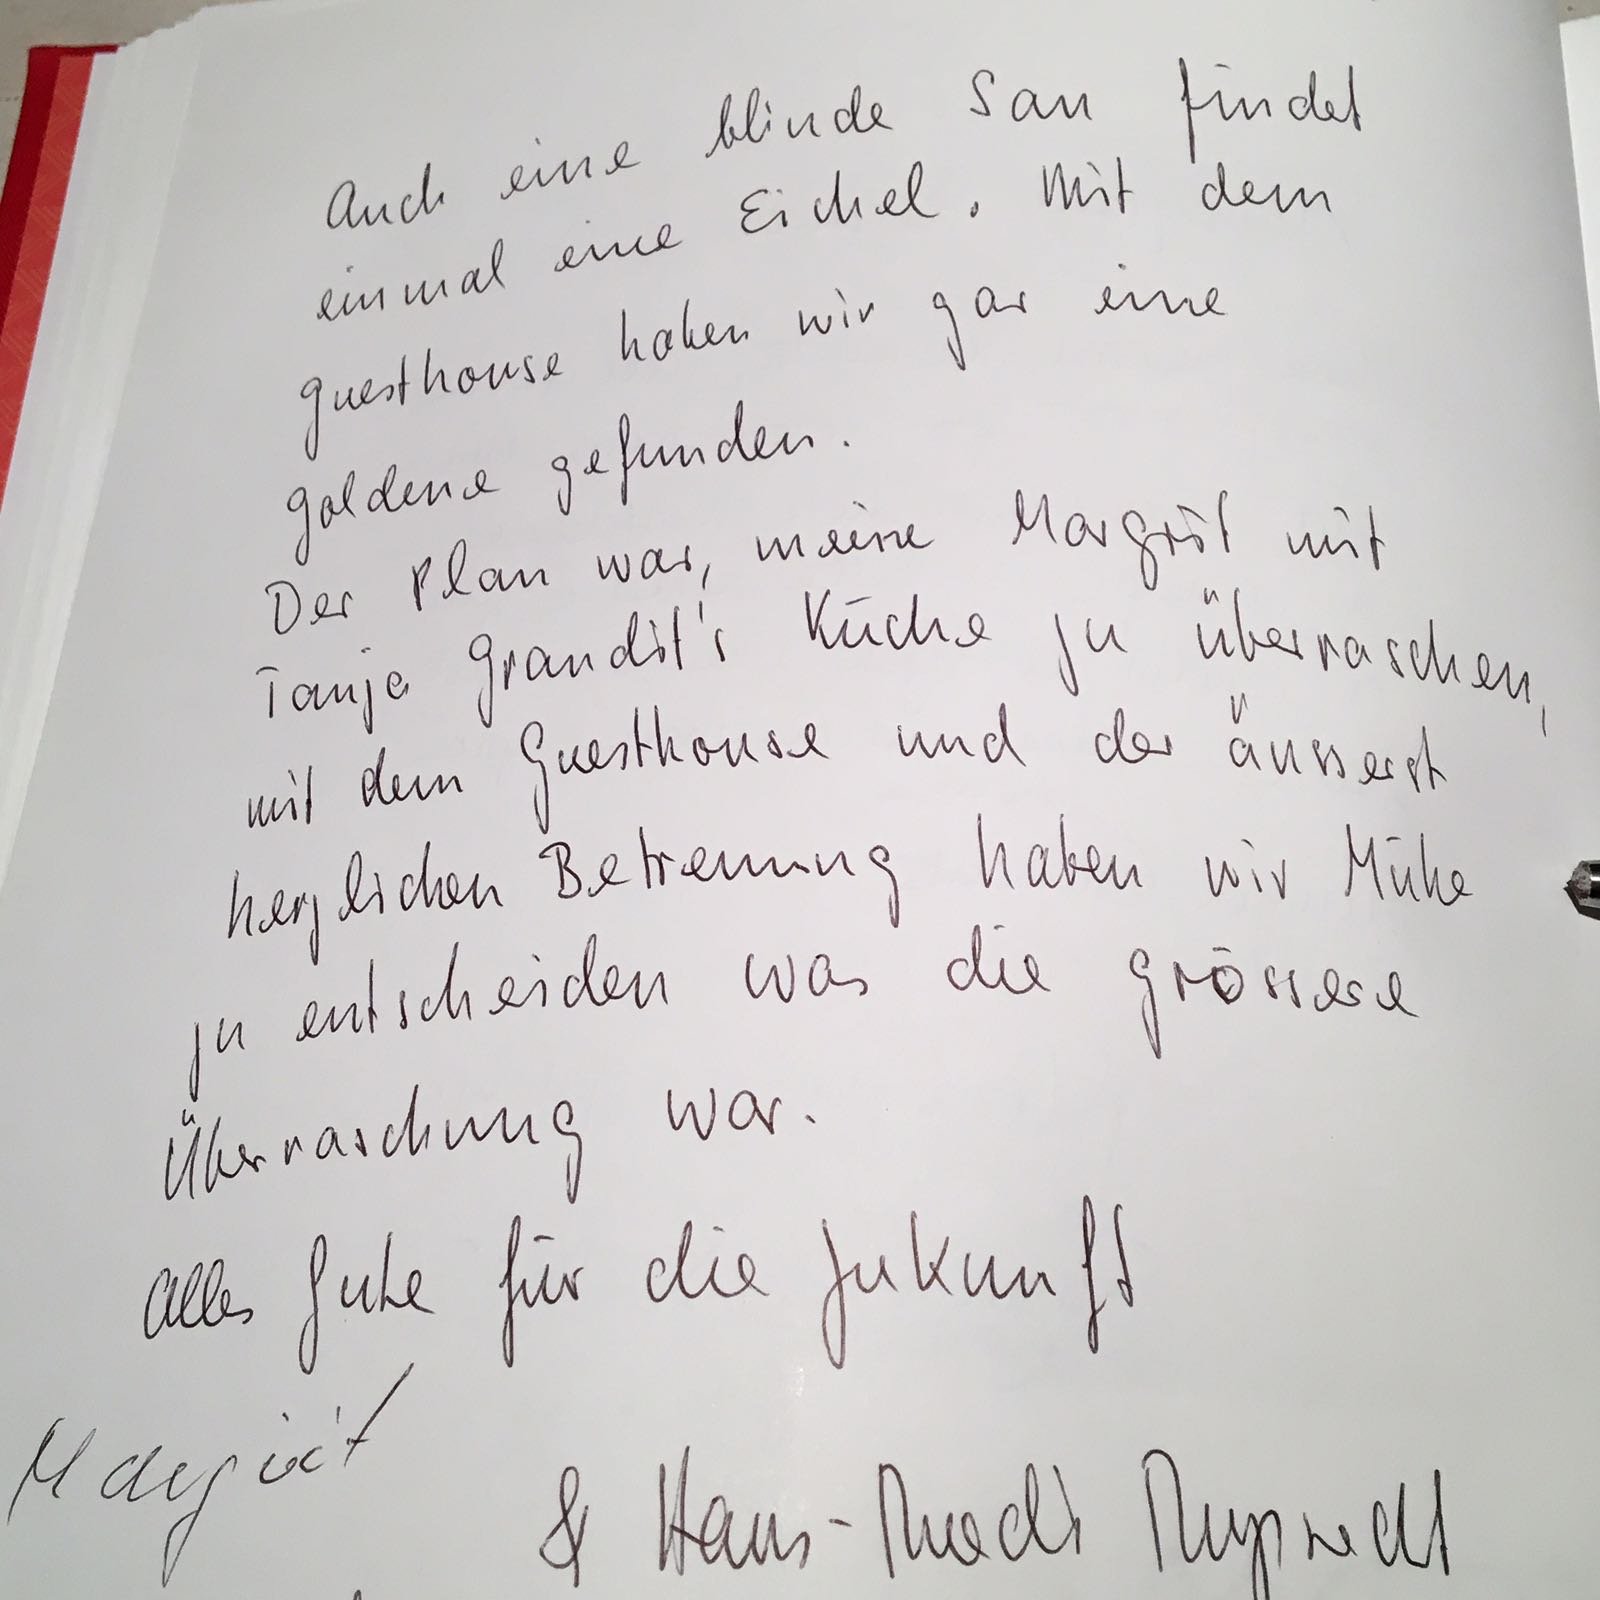 Auch eine blinde Sau findet
einmal eine Eichel. Mit dem
guesthouse haben wir gar eine
goldene gefunden.
Der Plan war, meine Margrit mit
Tanja Grandit's Küche zu überraschen,
mit dem Guesthouse und der äusserst
herzlichen Betreuung haben wir Mühe
zu entscheiden was die grössere
Überraschung war.
Alles Gute für die Zukunft
Margrit
& Hans-Ruedi Ruprecht